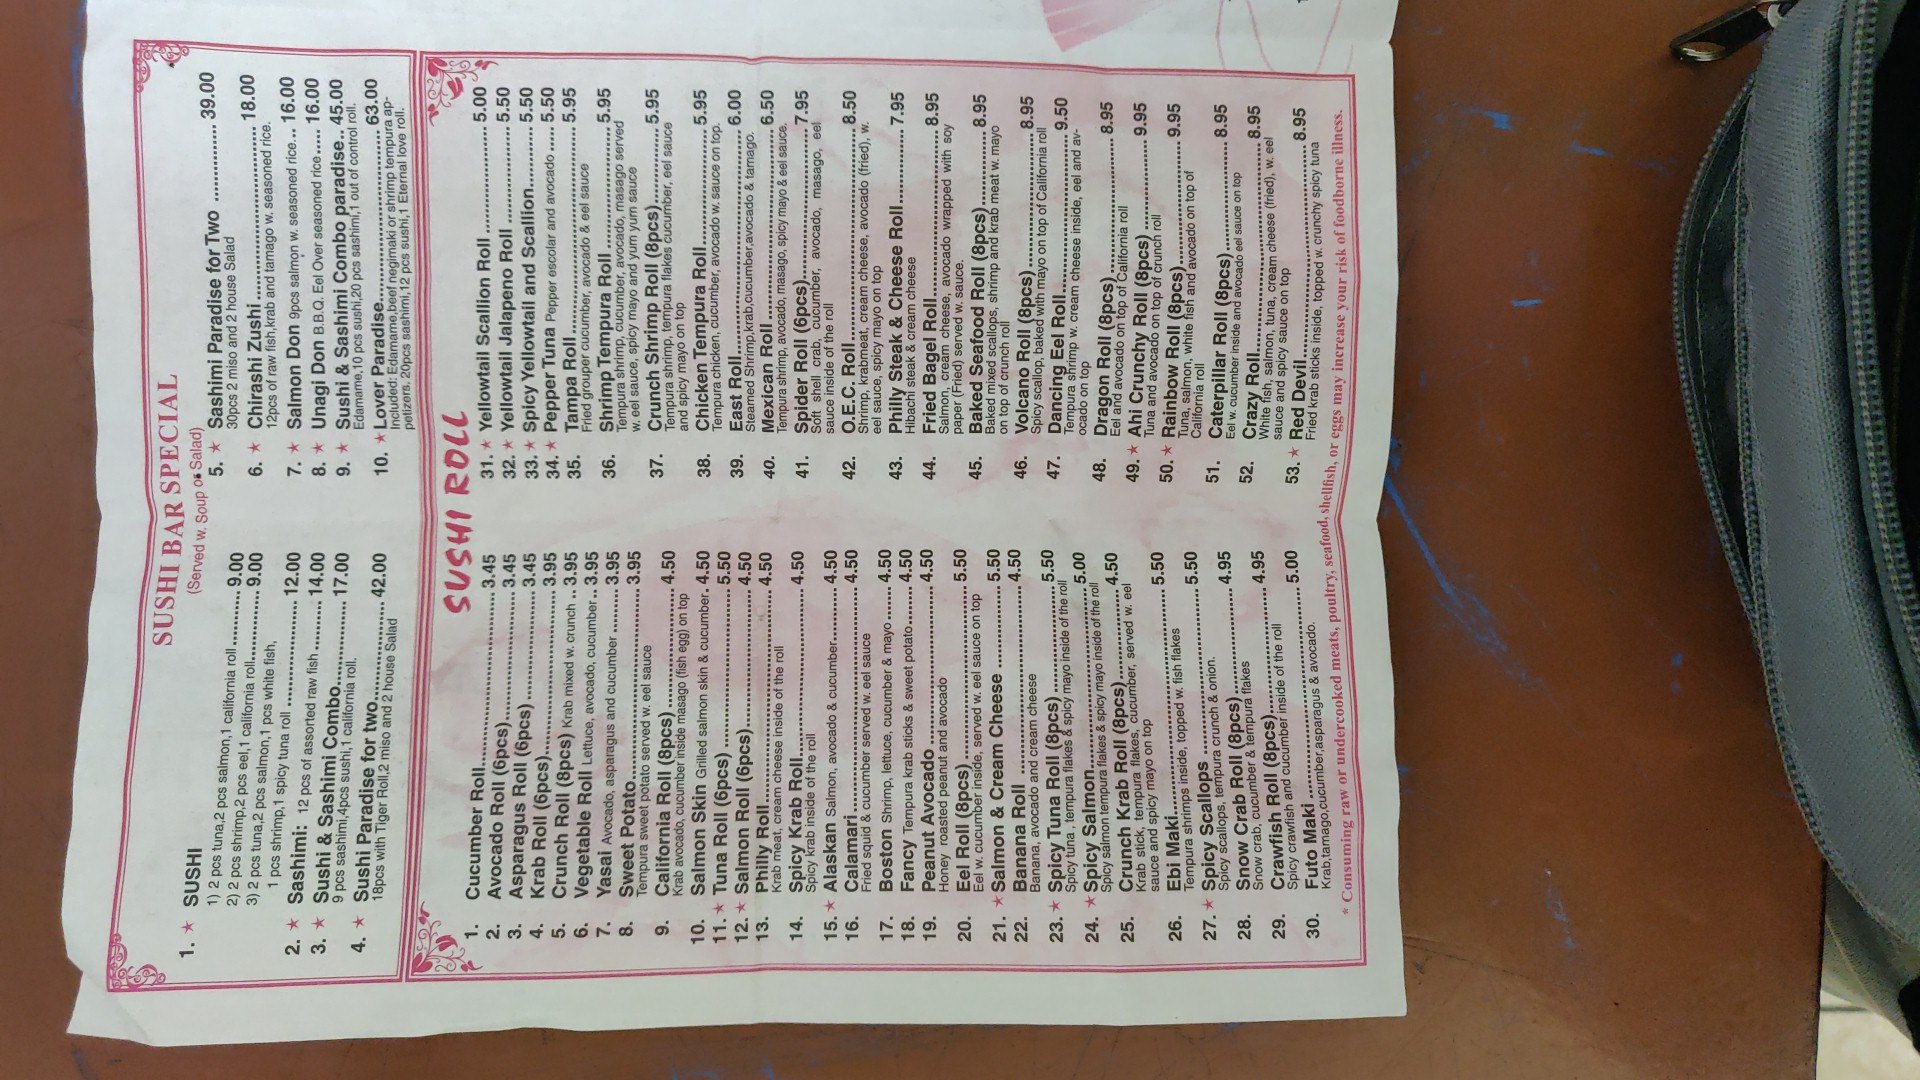 SUSHI BAR SPECIAL
(Served w. Soup or Salad)
1. ★ SUSHI
1) 2 pcs tuna,2 pcs salmon,1 california roll .......... 9.00
2) 2 pcs shrimp,2 pcs eel,1 california roll .......... 9.00
3) 2 pcs tuna,2 pcs salmon,1 pcs white fish,
1 pcs shrimp,1 spicy tuna roll .......... 12.00
2. ★ Sashimi: 12 pcs of assorted raw fish .......... 14.00
3. ★ Sushi & Sashimi Combo .......... 17.00
9 pcs sashimi,4pcs sushi,1 california roll.
4. ★ Sushi Paradise for two .......... 42.00
18pcs with Tiger Roll,2 miso and 2 house Salad
5. ★ Sashimi Paradise for Two .......... 39.00
30pcs 2 miso and 2 house Salad
6. ★ Chirashi Zushi .......... 18.00
12pcs of raw fish,krab and tamago w. seasoned rice.
7. ★ Salmon Don 9pcs salmon w. seasoned rice... 16.00
8. ★ Unagi Don B.B.Q. Eel Over seasoned rice..... 16.00
9. ★ Sushi & Sashimi Combo paradise.. 45.00
Edamame,10 pcs sushi,20 pcs sashimi,1 out of control roll.
10. ★ Lover Paradise .......... 63.00
Included: Edamame,beef negimaki or shrimp tempura ap-
petizers. 20pcs sashimi,12 pcs sushi,1 Eternal love roll.
SUSHI ROLL
1. Cucumber Roll .......... 3.45
2. Avocado Roll (6pcs) .......... 3.45
3. Asparagus Roll (6pcs) .......... 3.45
4. Krab Roll (6pcs) .......... 3.95
5. Crunch Roll (8pcs) Krab mixed w. crunch .. 3.95
6. Vegetable Roll Lettuce, avocado, cucumber.. 3.95
7. Yasai Avocado, asparagus and cucumber .......... 3.95
8. Sweet Potato .......... 3.95
Tempura sweet potato served w. eel sauce
9. California Roll (8pcs) .......... 4.50
Krab avocado, cucumber inside masago (fish egg) on top
10. Salmon Skin Grilled salmon skin & cucumber. 4.50
11. ★ Tuna Roll (6pcs) .......... 5.50
12. ★ Salmon Roll (6pcs) .......... 4.50
13. Philly Roll .......... 4.50
Krab meat, cream cheese inside of the roll
14. Spicy Krab Roll .......... 4.50
Spicy krab inside of the roll
15. ★ Alaskan Salmon, avocado & cucumber .......... 4.50
16. Calamari .......... 4.50
Fried squid & cucumber served w. eel sauce
17. Boston Shrimp, lettuce, cucumber & mayo .... 4.50
18. Fancy Tempura krab sticks & sweet potato ..... 4.50
19. Peanut Avocado .......... 4.50
Honey roasted peanut and avocado
20. Eel Roll (8pcs) .......... 5.50
Eel w. cucumber inside, served w. eel sauce on top
21. ★ Salmon & Cream Cheese .......... 5.50
22. Banana Roll .......... 4.50
Banana, avocado and cream cheese
23. ★ Spicy Tuna Roll (8pcs) .......... 5.50
Spicy tuna , tempura flakes & spicy mayo inside of the roll
24. ★ Spicy Salmon .......... 5.00
Spicy salmon tempura flakes & spicy mayo inside of the roll
25. Crunch Krab Roll (8pcs) .......... 4.50
Krab stick, tempura flakes, cucumber, served w. eel
sauce and spicy mayo on top
26. Ebi Maki .......... 5.50
Tempura shrimps inside, topped w. fish flakes
27. ★ Spicy Scallops .......... 5.50
Spicy scallops, tempura crunch & onion.
28. Snow Crab Roll (8pcs) .......... 4.95
Snow crab, cucumber & tempura flakes
29. Crawfish Roll (8pcs) .......... 4.95
Spicy crawfish and cucumber inside of the roll
30. Futo Maki .......... 5.00
Krab,tamago,cucumber,asparagus & avocado.
31. ★ Yellowtail Scallion Roll .......... 5.00
32. ★ Yellowtail Jalapeno Roll .......... 5.50
33. ★ Spicy Yellowtail and Scallion .......... 5.50
34. ★ Pepper Tuna Pepper escolar and avocado ..... 5.50
35. Tampa Roll .......... 5.95
Fried grouper cucumber, avocado & eel sauce
36. Shrimp Tempura Roll .......... 5.95
Tempura shrimp, cucumber, avocado, masago served
w. eel sauce, spicy mayo and yum yum sauce
37. Crunch Shrimp Roll (8pcs) .......... 5.95
Tempura shrimp, tempura flakes cucumber, eel sauce
and spicy mayo on top
38. Chicken Tempura Roll .......... 5.95
Tempura chicken, cucumber, avocado w. sauce on top.
39. East Roll .......... 6.00
Steamed Shrimp,krab,cucumber,avocado & tamago.
40. Mexican Roll .......... 6.50
Tempura shrimp, avocado, masago, spicy mayo & eel sauce.
41. Spider Roll (6pcs) .......... 7.95
Soft shell crab, cucumber, avocado, masago, eel
sauce inside of the roll
42. O.E.C. Roll .......... 8.50
Shrimp, krabmeat, cream cheese, avocado (fried), w.
eel sauce, spicy mayo on top
43. Philly Steak & Cheese Roll .......... 7.95
Hibachi steak & cream cheese
44. Fried Bagel Roll .......... 8.95
Salmon, cream cheese, avocado wrapped with soy
paper (Fried) served w. sauce.
45. Baked Seafood Roll (8pcs) .......... 8.95
Baked mixed scallops, shrimp and krab meat w. mayo
on top of crunch roll
46. Volcano Roll (8pcs) .......... 8.95
Spicy scallop, baked with mayo on top of California roll
47. Dancing Eel Roll .......... 9.50
Tempura shrimp w. cream cheese inside, eel and av-
ocado on top
48. Dragon Roll (8pcs) .......... 8.95
Eel and avocado on top of California roll
49. ★ Ahi Crunchy Roll (8pcs) .......... 9.95
Tuna and avocado on top of crunch roll
50. ★ Rainbow Roll (8pcs) .......... 9.95
Tuna, salmon, white fish and avocado on top of
California roll
51. Caterpillar Roll (8pcs) .......... 8.95
Eel w. cucumber inside and avocado eel sauce on top
52. Crazy Roll .......... 8.95
White fish, salmon, tuna, cream cheese (fried), w. eel
sauce and spicy sauce on top
53. ★ Red Devil .......... 8.95
Fried krab sticks inside, topped w. crunchy spicy tuna
* Consuming raw or undercooked meats, poultry, seafood, shellfish, or eggs may increase your risk of foodborne illness.